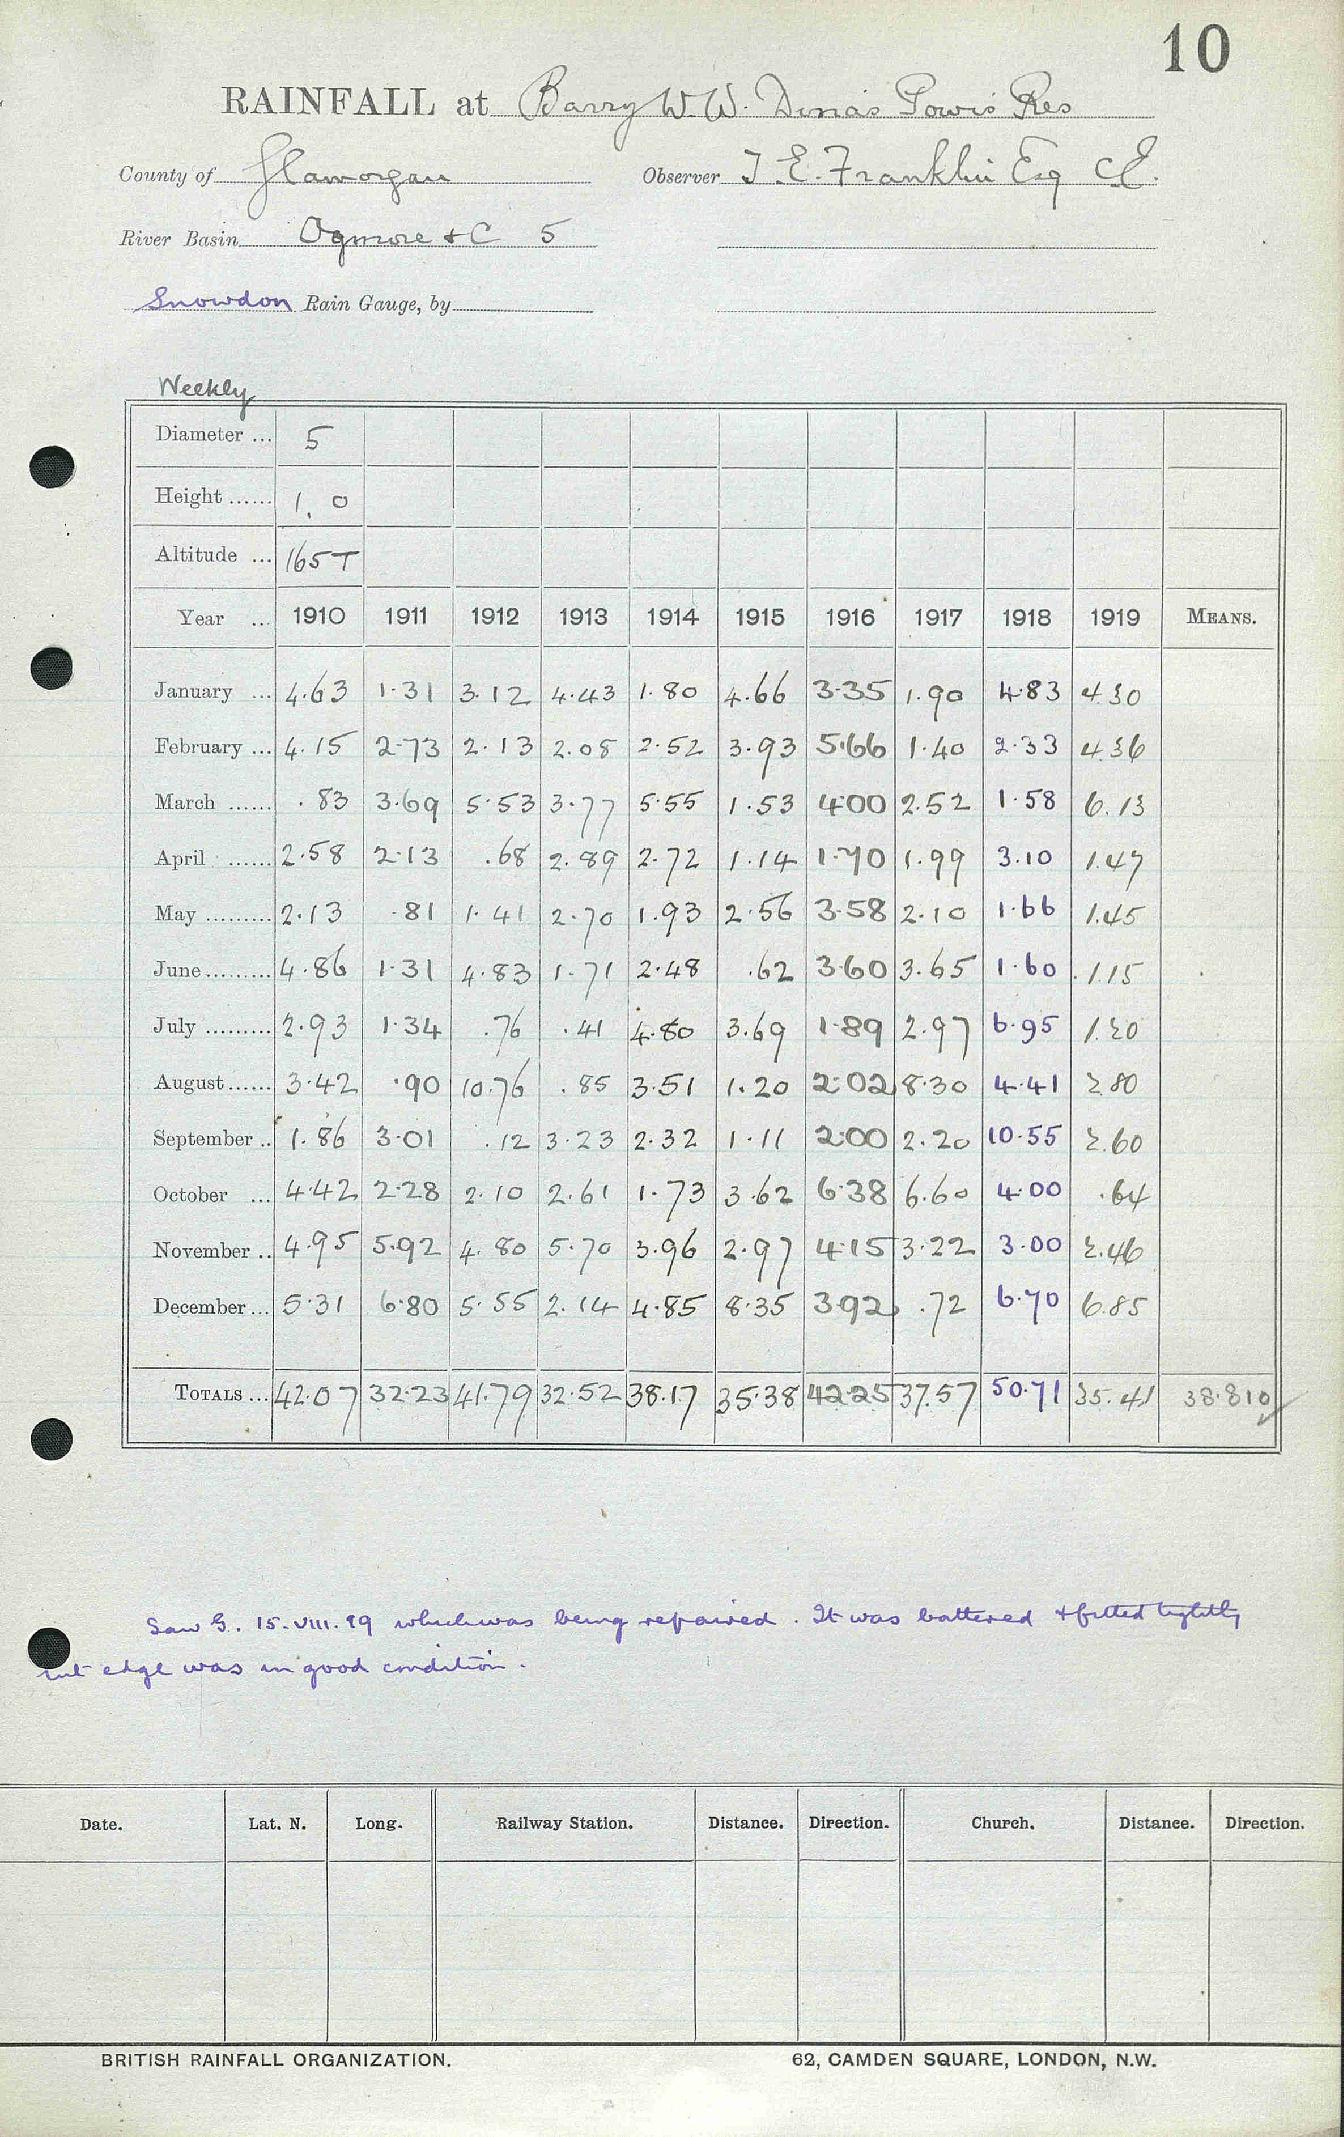 10
RAINFALL at Barry W.W. Dinas Powis Res
County of Glamorgan Observer T. E. Franklin Esq CE.
River Basin Ogmore & C 5
Snowdon Rain Gauge, by
Weekly
Diameter ... 5
Height ...... 1. 0
Altitude ... 165T
Year ... 1910 1911 1912 1913 1914 1915 1916 1917 1918 1919 MEANS.
January ... 4.63 1.31 3.12 4.43 1.80 4.66 3.35 1.90 4.83 4.30
February ... 4.15 2.73 2.13 2.08 2.52 3.93 5.66 1.40 2.33 4.36
March ...... .83 3.69 5.53 3.77 5.55 1.53 4.00 2.52 1.58 6.13
April ...... 2.58 2.13 .68 2.89 2.72 1.14 1.70 1.99 3.10 1.47
May ......... 2.13 .81 1.41 2.70 1.93 2.56 3.58 2.10 1.66 1.45
June ......... 4.86 1.31 4.83 1.71 2.48 .62 3.60 3.65 1.60 1.15
July ......... 2.93 1.34 .76 .41 4.80 3.69 1.89 2.97 6.95 1.20
August ...... 3.42 .90 10.76 .85 3.51 1.20 2.02 8.30 4.41 2.80
September .. 1.86 3.01 .12 3.23 2.32 1.11 2.00 2.20 10.55 2.60
October ... 4.42 2.28 2.10 2.61 1.73 3.62 6.38 6.60 4.00 .64
November .. 4.95 5.92 4.80 5.70 3.96 2.97 4.15 3.22 3.00 2.46
December ... 5.31 6.80 5.55 2.14 4.85 8.35 3.92 .72 6.70 6.85
TOTALS ... 42.07 32.23 41.79 32.52 38.17 35.38 42.25 37.57 50.71 35.41 38.810
Saw G. 15.VIII.19 which was being repaired. It was battered & fitted tightly
but edge was in good condition.
Date. Lat. N. Long. Railway Station. Distance. Direction. Church. Distance. Direction.
BRITISH RAINFALL ORGANIZATION. 62, CAMDEN SQUARE, LONDON, N.W.